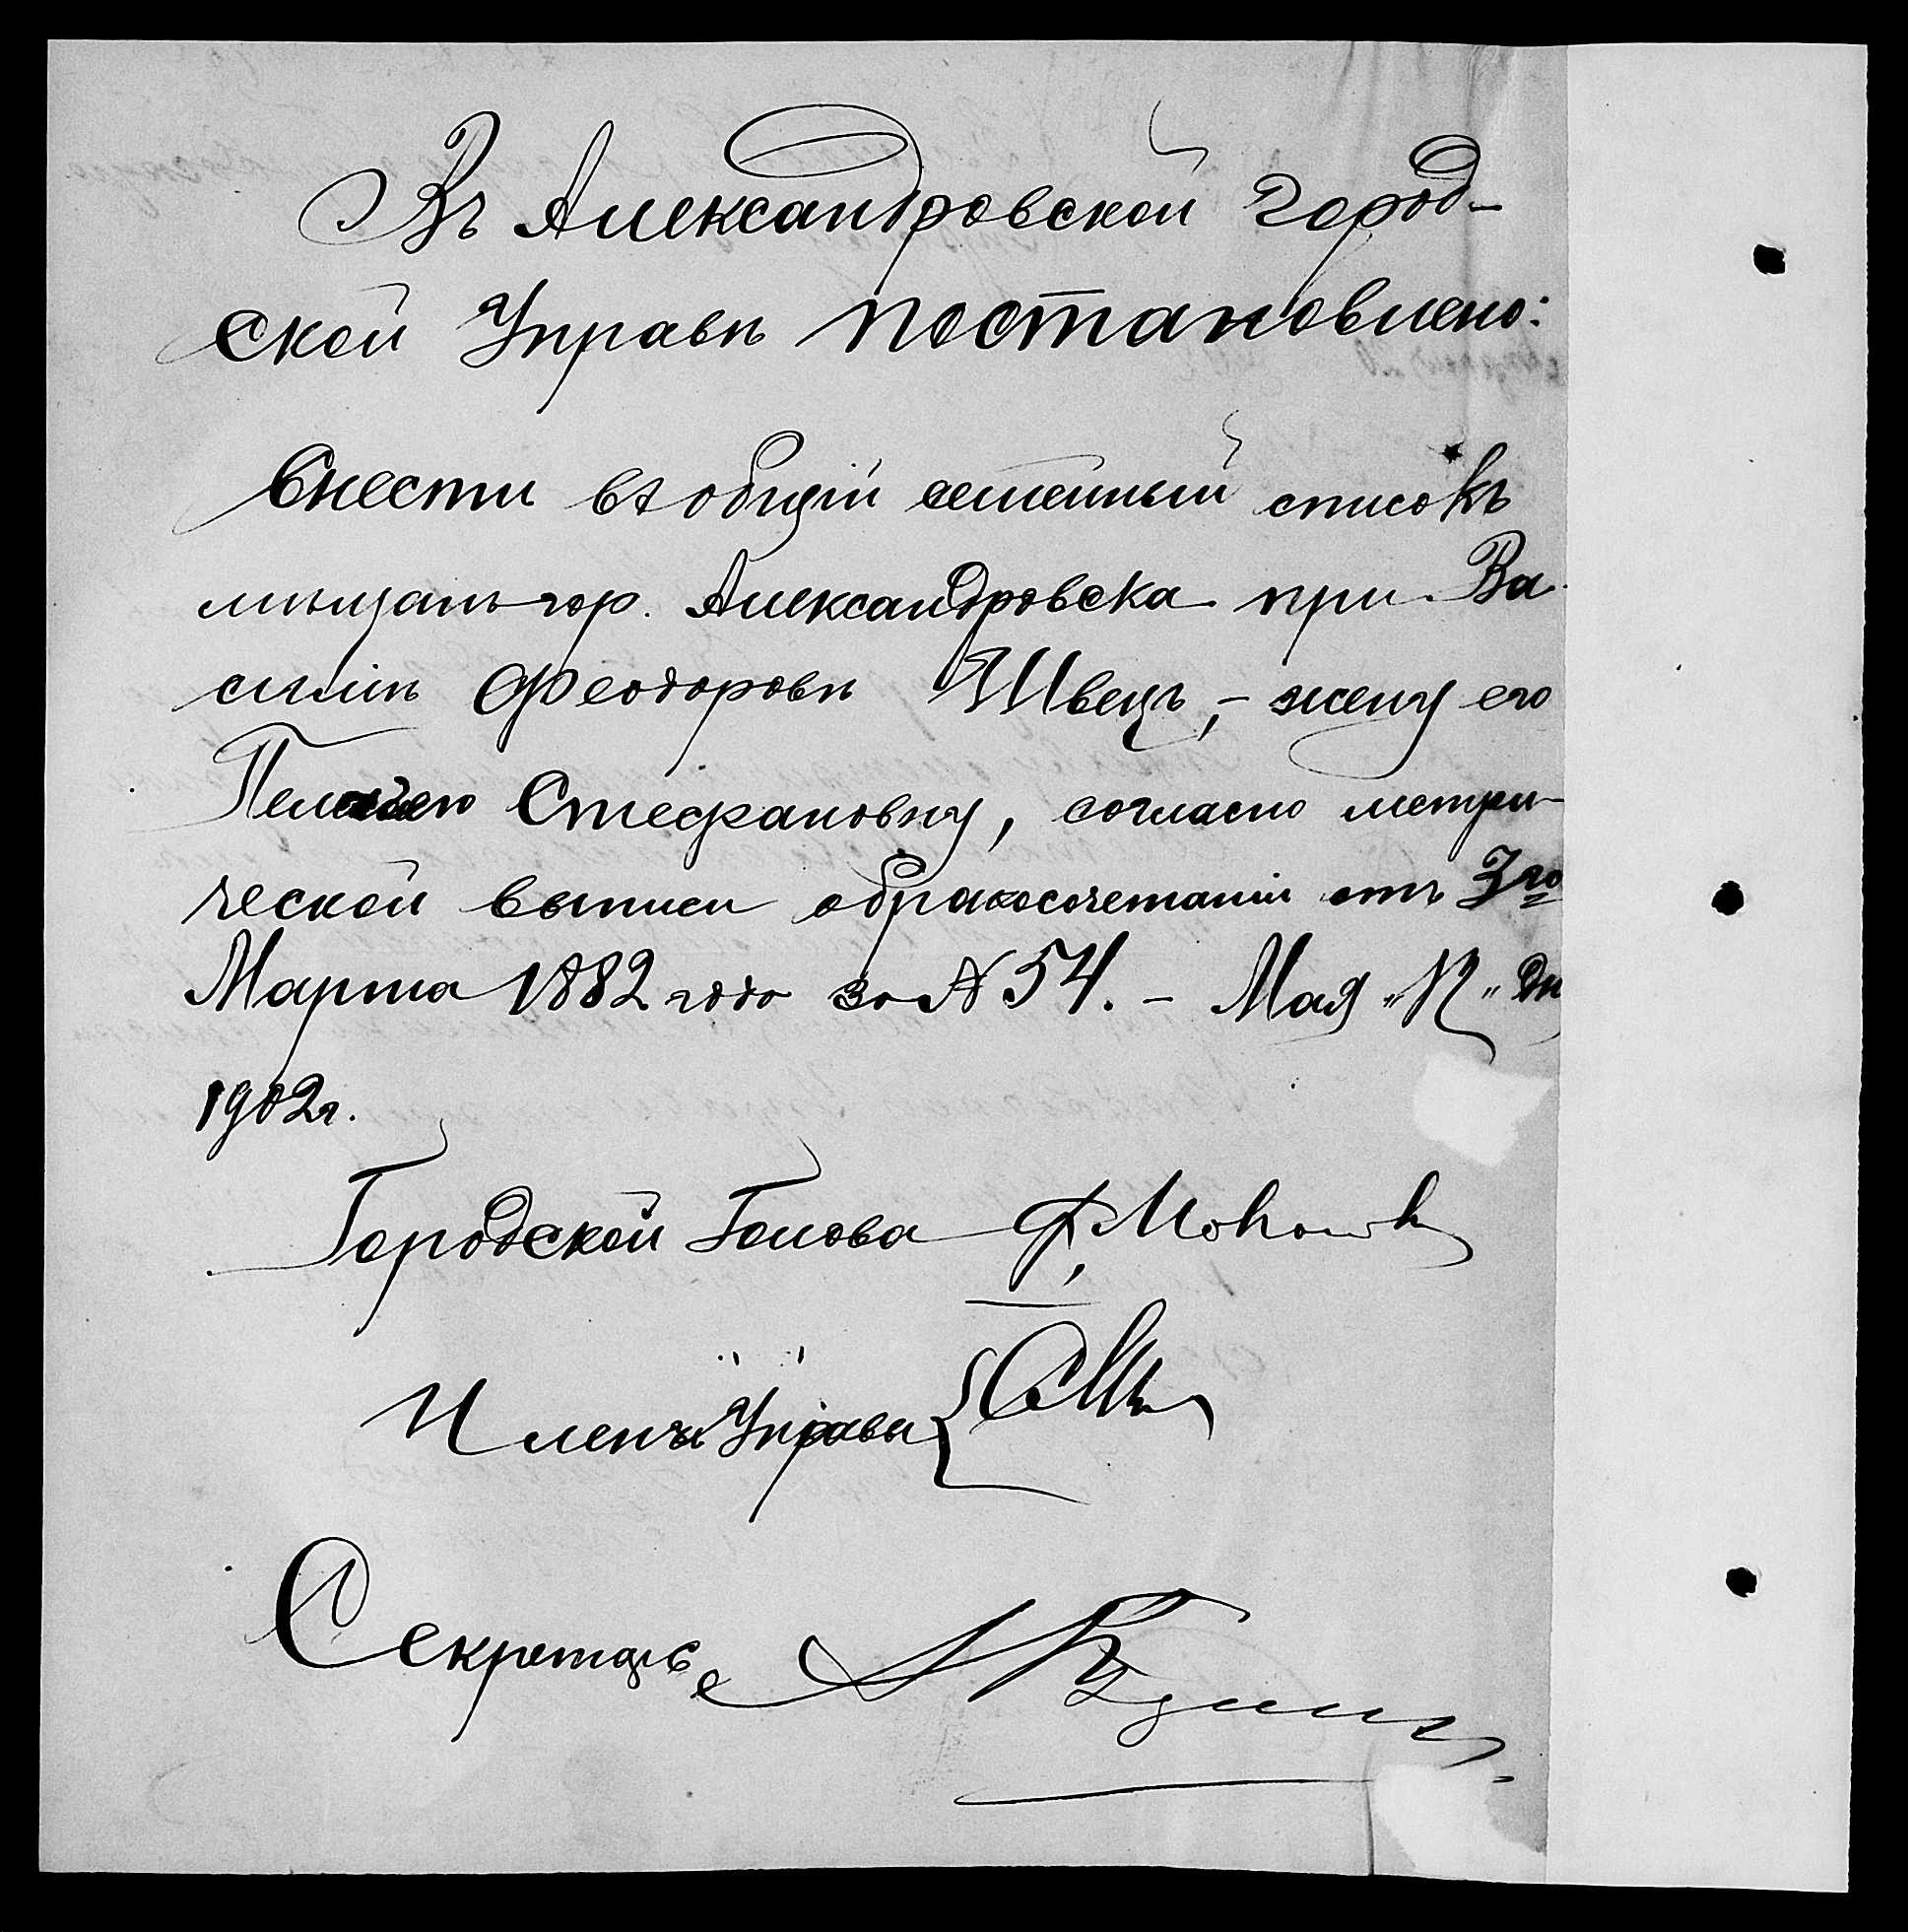 Въ Александровской Город-
ской Управѣ постановлено:
Внести въ общій семейный списокъ
мѣщанъ гор. Александровска при Ва-
силіѣ Феодоровѣ Швецъ, - жену его
Стефановну, согласно метри-
ческой выписи о бракосочетаніи отъ 3го
Марта 1882 года за № 54. - Мая „ “ дня
1902 г.
Городской Голова Ф. 
Члены Управы
Секретарь